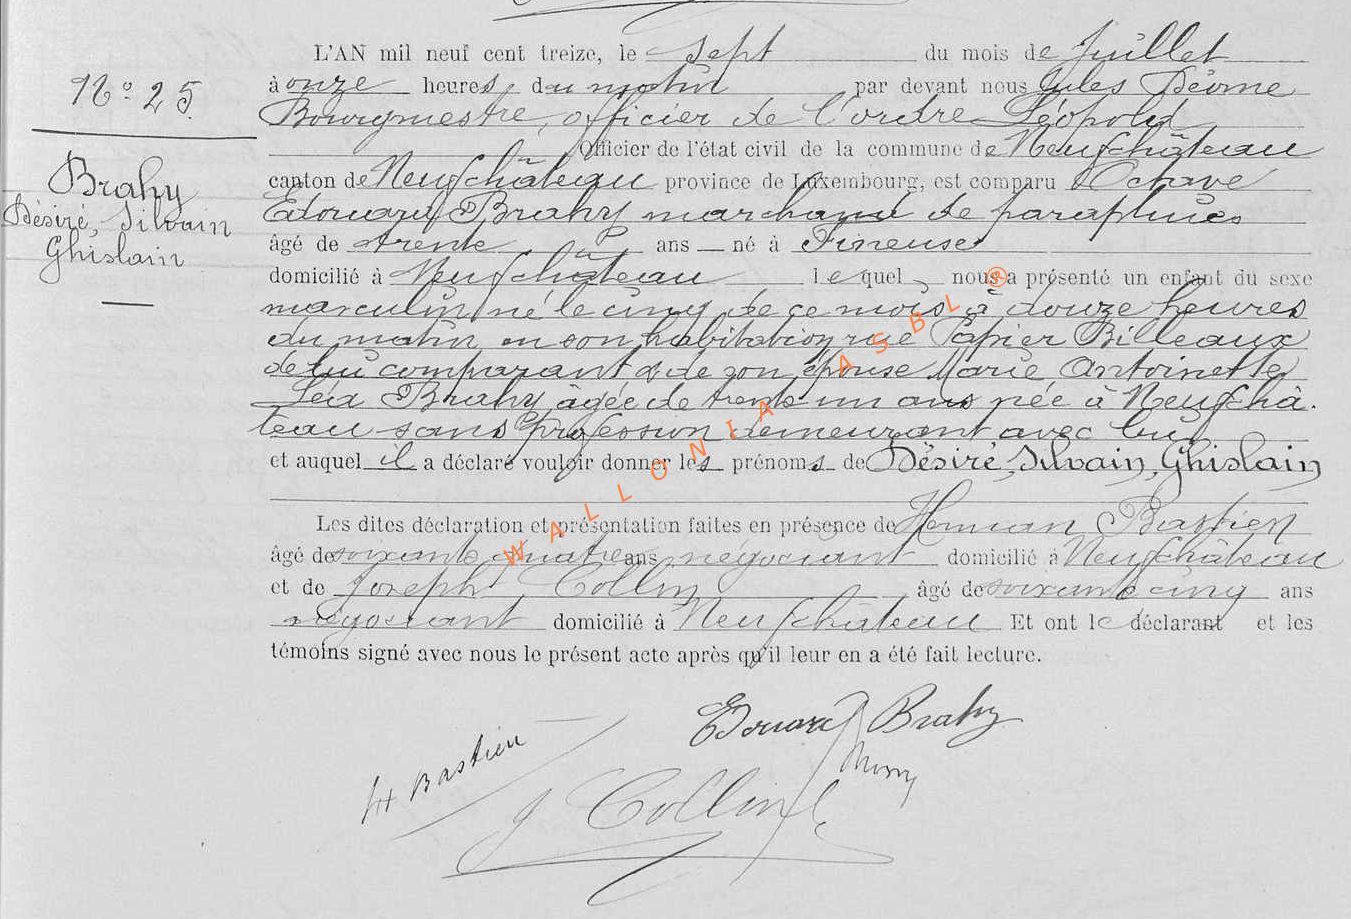 L'AN mil neuf cent treize, le sept du mois de Juillet
N° 25.
à onze heures du matin par devant nous Jules
Bourgmestre, officier de l'ordre Léopold
Officier de l'état civil de la commune de Neufchâteau
canton de Neufchâteau province de Luxembourg, est comparu Octave
Brahy
Désiré, Silvain
Ghislain
Edouard Brahy marchand de parapluies
âgé de trente ans né à
domicilié à Neufchâteau lequel nous a présenté un enfant du sexe
masculin né le cinq de ce mois à douze heures
du matin en son habitation rue Papier Billeaux
de lui comparant & de son épouse Marie Antoinette
Léa Brahy âgée de trente un ans née à Neufchâ-
teau sans profession demeurant avec lui
et auquel il a déclaré vouloir donner les prénoms de Désiré, Silvain, Ghislain
Les dites déclaration et présentation faites en présence de Herman Bastien
âgé de soixante quatre ans négociant domicilié à Neufchâteau
et de Joseph Collin âgé de soixante cinq ans
négociant domicilié à Neufchâteau Et ont le déclarant et les
témoins signé avec nous le présent acte après qu'il leur en a été fait lecture.
Edouard Brahy
H Bastien
J Collin
WALLONIA ASBL ®